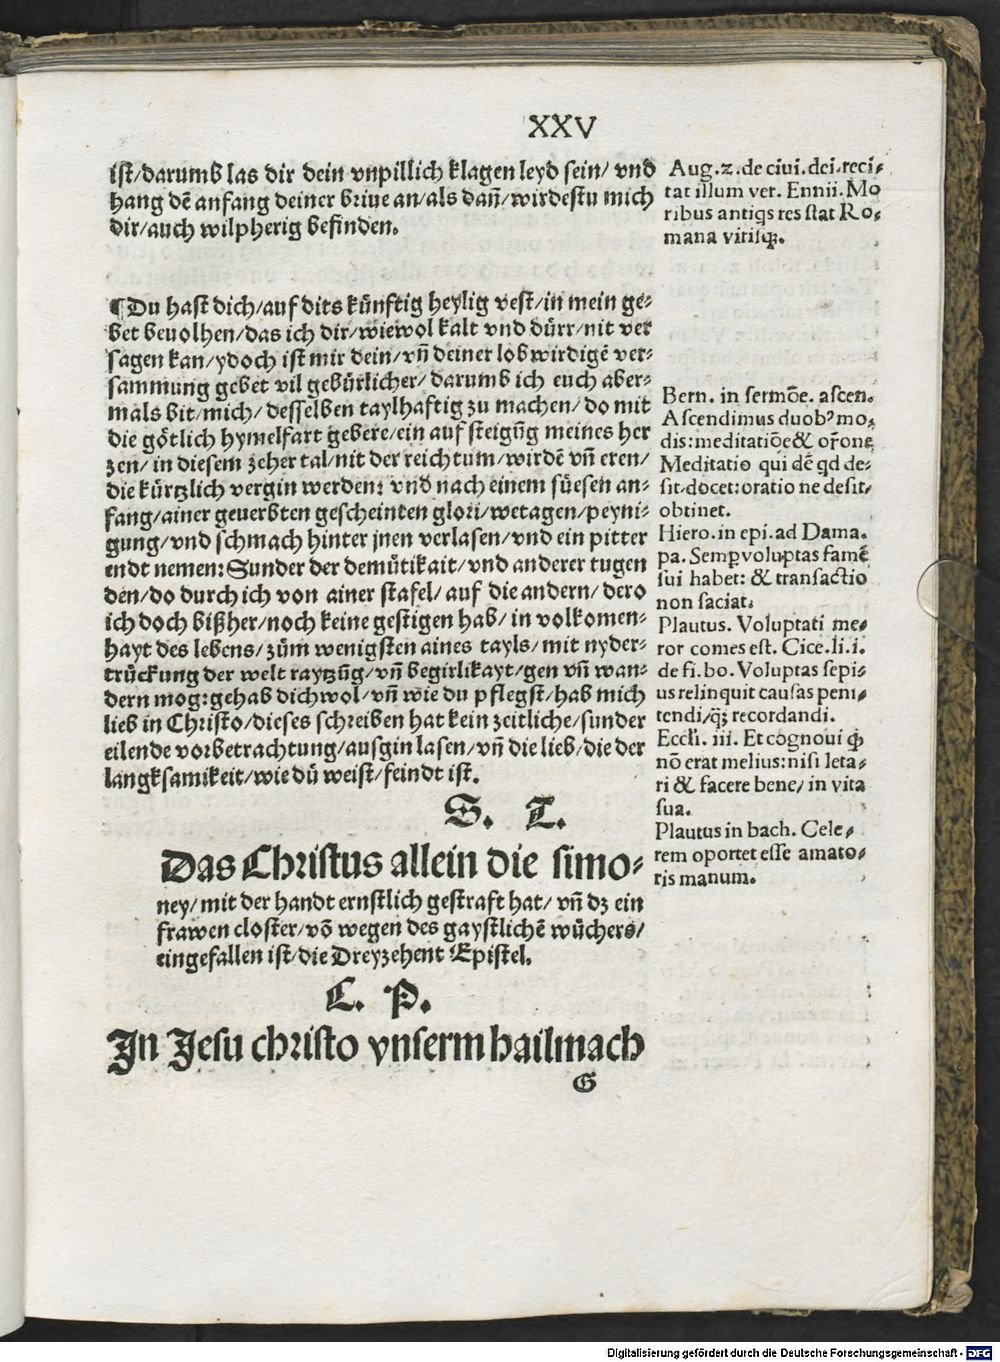 XXV
ist/darumb las dir dein vnpillich klagen leyd sein/ vnd
hang dē anfang deiner briue an/als dañ/wirdestu mich
dir/auch wilpherig befinden.
¶Du hast dich/auf dits künftig heylig vest/in mein ge⸗
bet beuolhen/das ich dir/wiewol kalt vnd dürr/nit ver
sagen kan/ydoch ist mir dein/vñ deiner lobwirdigē ver⸗
sammung gebet vil gebürlicher/darumb ich euch aber⸗
mals bit/mich/desselben taylhaftig zu machen/do mit
die götlich hymelfart gebere/ein auf steigūg meines her
zen/in diesem zeher tal/nit der reichtum/wirdē vñ eren/
die kürtzlich vergin werden: vnd nach einem süesen an⸗
fang/ainer geuerbten gescheinten glori/wetagen/peyni⸗
gung/vnd schmach hinter jnen verlasen/vnd ein pitter
endt nemen: Sunder der demütikait/vnd anderer tugen
den/do durch ich von ainer stafel/auf die andern/dero
ich doch bißher/noch keine gestigen hab/in volkomen⸗
hayt des lebens/zům wenigsten aines tayls/mit nyder⸗
trückung der welt raytzūg/vñ begirlikayt/gen vñ wan⸗
dern mog: gehab dich wol/vñ wie du pflegst/hab mich
lieb in Christo/dieses schreiben hat kein zeitliche/sunder
eilende vorbetrachtung/ausgin lasen/vñ die lieb/die der
langksamikeit/wie dü weist/feindt ist.
S. L.
Das Christus allein die simo⸗
ney/mit der handt ernstlich gestraft hat/vñ dz ein
frawen closter/vō wegen des gaystlichē wůchers/
eingefallen ist/die Dreyzehent Epistel.
C. P.
In Jesu christo vnserm hailmach
G
Aug.2.de ciui.dei.reci⸗
tat illum ver. Ennii. Mo
ribus antiqs res stat Ro⸗
mana virisqꝫ.
Bern. in sermōe. ascen.
Ascendimus duobꝰ mo⸗
dis: meditatiōe & or̄one
Meditatio qui dē qd de⸗
sit.docet: oratio ne desit⸗
obtinet.
Hiero. in epi. ad Dama.
pa. Semꝑ voluptas famē
sui habet: & transactio
non saciat.
Plautus. Voluptati me⸗
ror comes est. Cice.li.i.
de fi. bo. Voluptas sepi⸗
us relinquit causas peni⸗
tendi/qꝫ recordandi.
Eccli. iii. Et cognoui ꝙ
nō erat melius: nisi leta⸗
ri & facere bene/ in vita
sua.
Plautus in bach. Cele⸗
rem oportet esse amato⸗
ris manum.
Digitalisierung gefördert durch die Deutsche Forschungsgemeinschaft - DFG